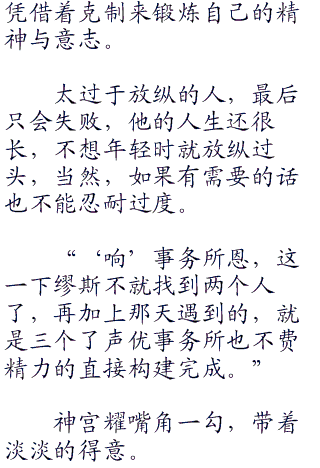 凭借着克制来锻炼自己的精
神与意志。
太过于放纵的人，最后
只会失败，他的人生还很
长，不想年轻时就放纵过
头，当然，如果有需要的话
也不能忍耐过度。
“‘响’事务所恩，这
一下缪斯不就找到两个人
了，再加上那天遇到的，就
是三个了声优事务所也不费
精力的直接构建完成。”
神宫耀嘴角一勾，带着
淡淡的得意。